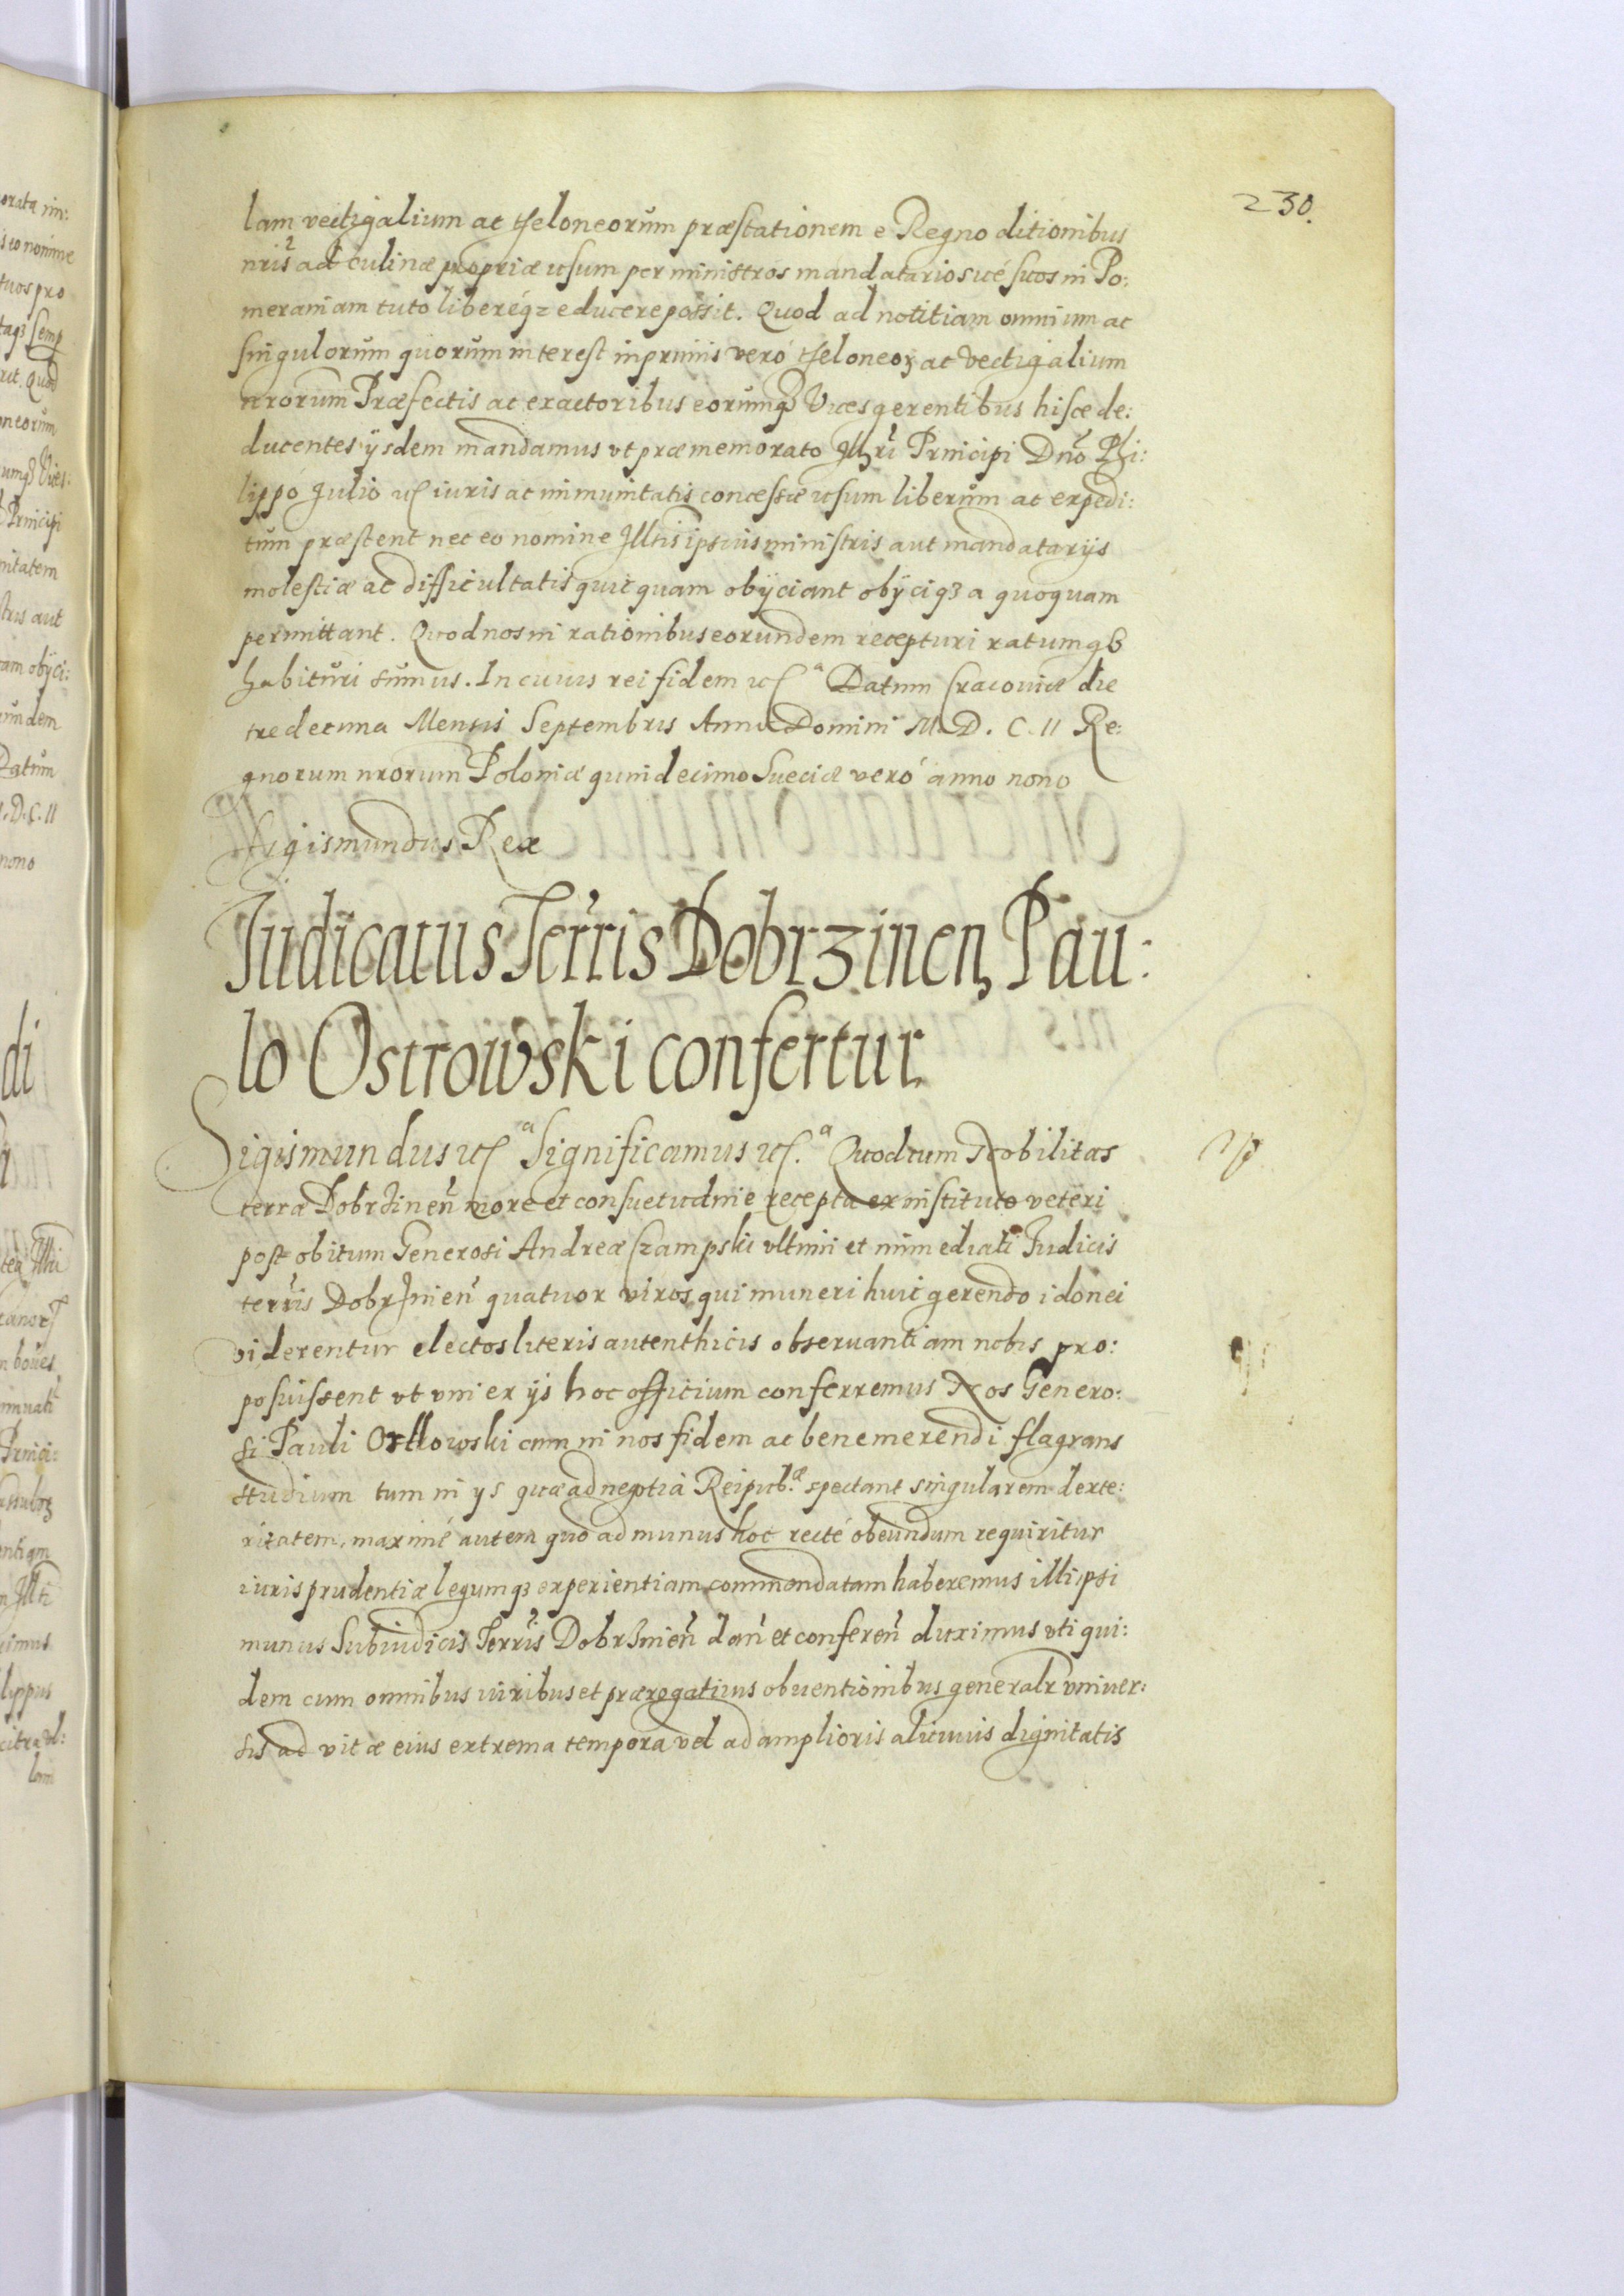 230.
lam vectigalium ac theloneorum præstationem e Regno ditionibus
nris ad culinæ propriæ usum per ministros mandatariosué suos in Po:
meraniam tuto libereq₃ educere possit. Quod ad notitiam omnium ac
singulorum quorum interest inprimis veró theloneoꝝ ac vectigalium
nrorum Præfectis ac exactoribus eorumq₃ Vicesgerentibus hisce de:
ducentes ijsdem mandamus vt præmemorato Illri Principi Dno Phi:
lippo Julio etc iuris ac immunitatis concessæ usum liberum ac expedi:
tum præstent nec eo nomine Illtis ipsius ministris aut mandatarijs
molestiæ ac difficultatis quicquam obijciant obijciq₃ a quoquam
permittant. Quod nos in rationibus eorundem recepturi ratumq₃
habituri sumus. In cuius rei fidem etc^a Datum Cracouiæ die
tredecima Mensis Septembris Anno Domini M. D. C. II Re:
gnorum nrorum Poloniæ quindecimo Sueciæ veró anno nono
Sigismundus Rex
Judicatus Terris Dobrzinen, Pau:
lo Ostrowski confertur.
Sigismundus etc^a Significamus etc.^a Quod cum Nobilitas
terræ Dobrzinen more et consuetudine recepta ex instituto veteri
post obitum Generosi Andreæ Czampski vltimi et immediati Judicis
terris Dobrzinen quatuor viros qui muneri huic gerendo idonei
viderentur electos literis autenthicis obseruantiam nobis pro:
posuissent vt vni ex ijs hoc officium conferremus Nos Genero:
si Pauli Ostlowski cum in nos fidem ac benemerendi flagrans
studium tum in ys quæ ad neptia Reipub.æ spectant singularem dexte:
ritatem, maximé autem quo ad munus hoc recté obeundum requiritur
iurisprudentiæ legumq₃ experientiam commendatam haberemus illi ipsi
munus Subiudicis Terris Dobrzinen dan et conferen duximus vti qui:
dem cum omnibus iuribus et prærogatiuis obuentionibus generalr vniuer:
sis ad vitæ eius extrema tempora vel ad amplioris alicuius dignitatis